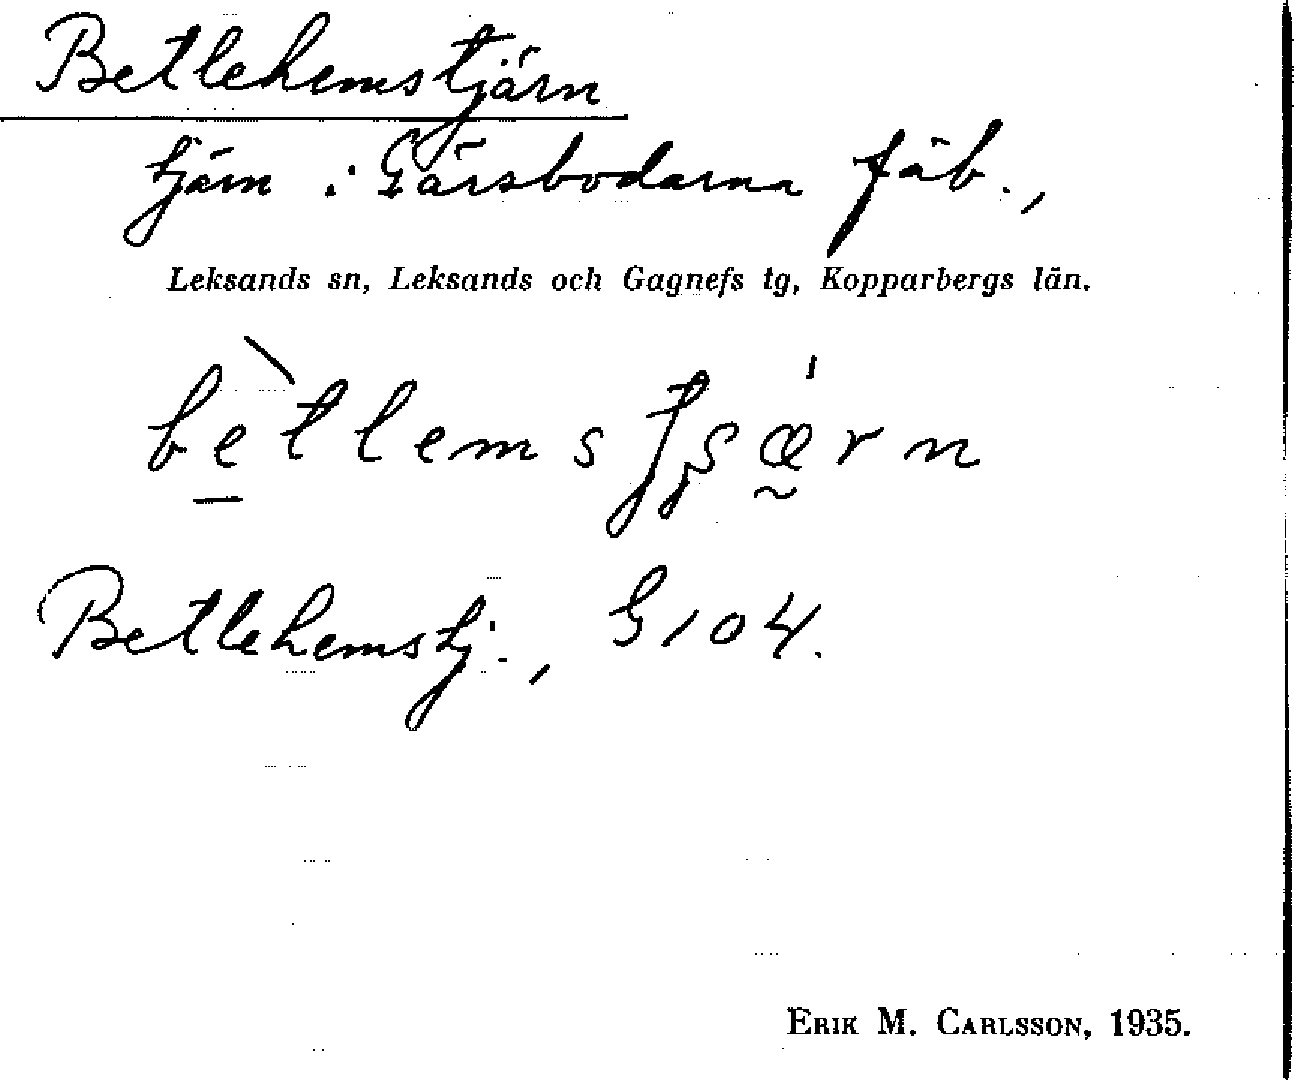 Betlehemstjärn
tjärn i Gärsbodarna fäb.,
Leksands sn, Leksands och Gagnefs tg, Kopparbergs län.
Betlehemstj., G 104.
ERIK M. CARLSSON, 1935.